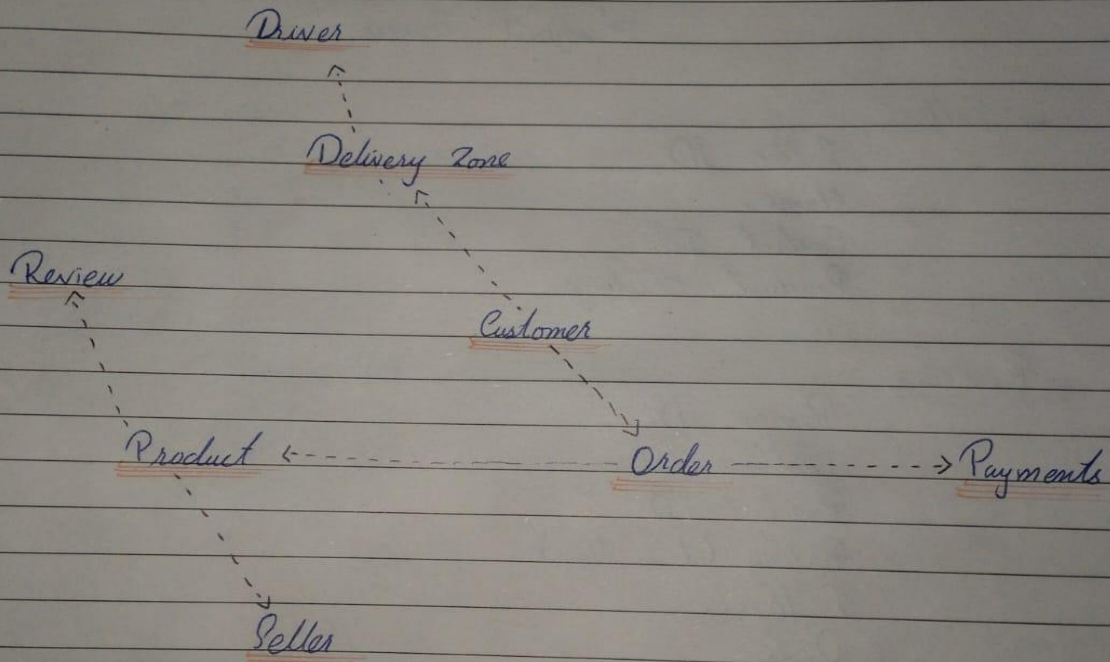 Driver
Delivery Zone
Review
Customer
Product
Order
Payments
Seller